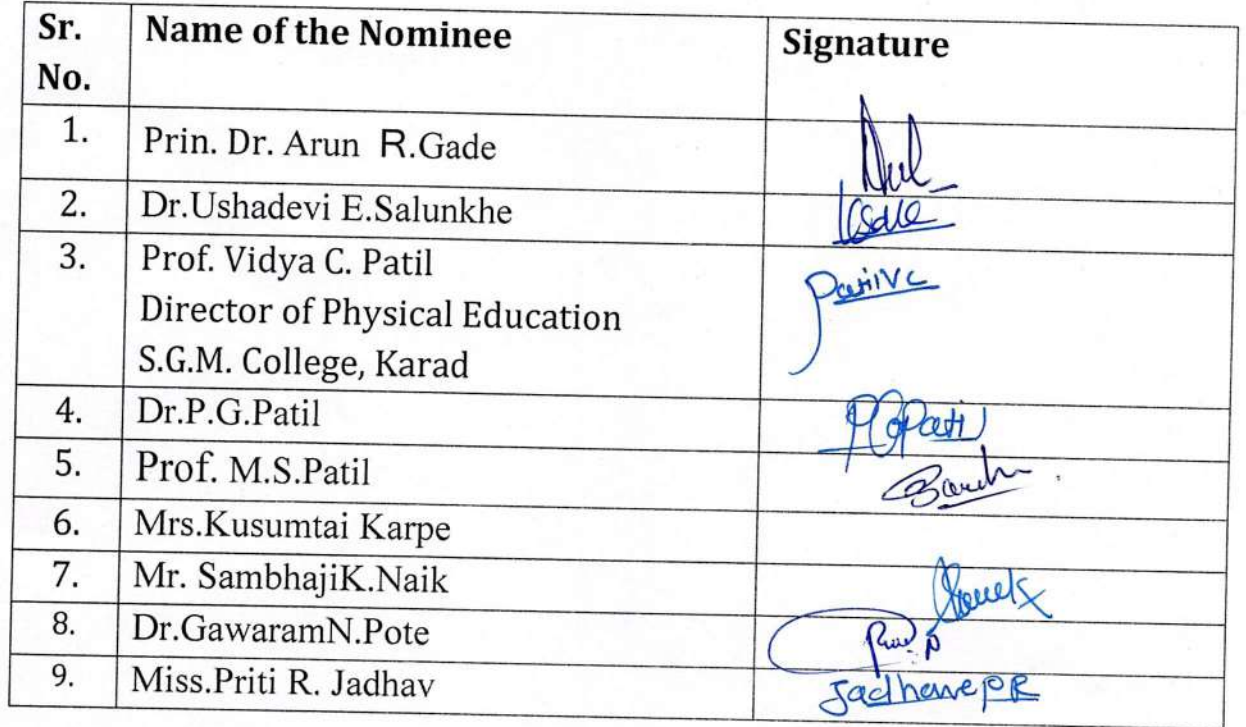 Sr. No. Name of the Nominee Signature
1. Prin. Dr. Arun R.Gade
2. Dr.Ushadevi E.Salunkhe
3. Prof. Vidya C. Patil PatilVC
Director of Physical Education
S.G.M. College, Karad
4. Dr.P.G.Patil PGPatil
5. Prof. M.S.Patil
6. Mrs.Kusumtai Karpe
7. Mr. SambhajiK.Naik
8. Dr.GawaramN.Pote
9. Miss.Priti R. Jadhav Jadhav PR